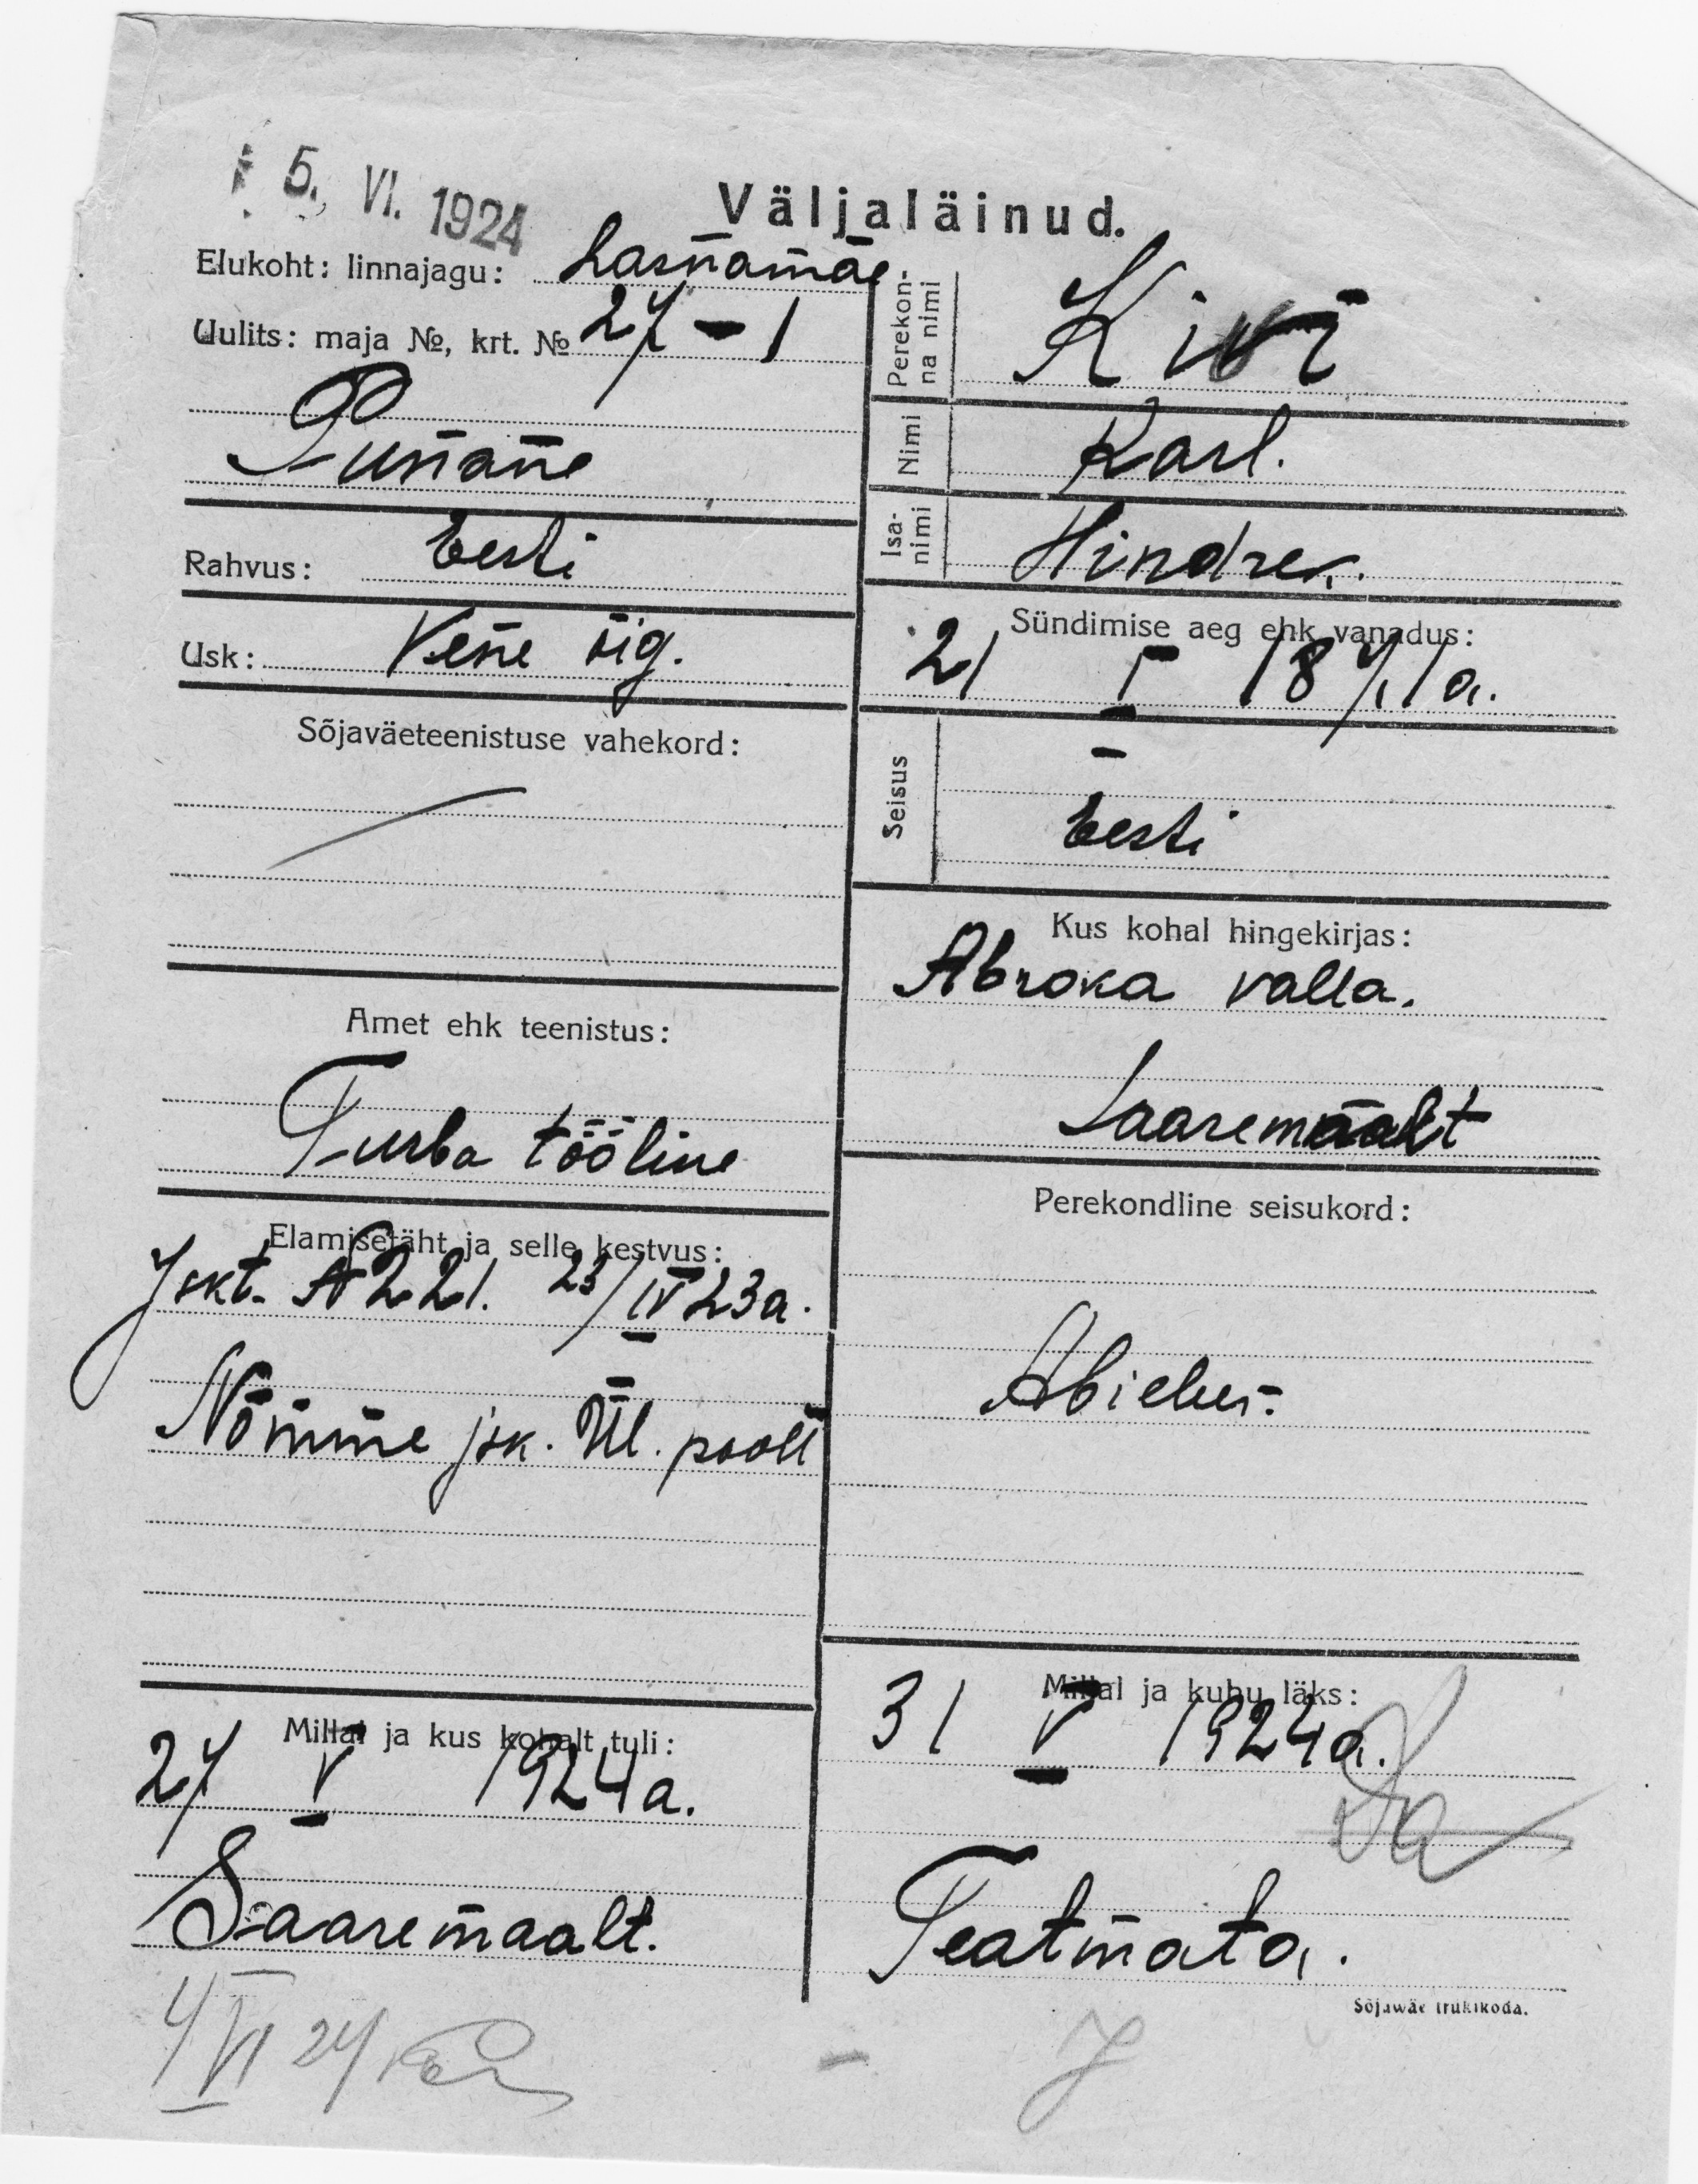 5. VI. 1924
Väljaläinud.
Elukoht: linnajagu: Lasnamäe.
Uulits: maja №, krt. № 27 – 1
Punane
Rahvus: Eesti
Usk: Vene õig.
Sõjaväeteenistuse vahekord:
Amet ehk teenistus:
Turba tööline
Elamisetäht ja selle kestvus:
Iskt. № 221. 23/IV 23a.
Nõmme jsk. Ül. poolt
Millal ja kus kohalt tuli:
27 V 1924 a.
Saaremaalt.
4 VI 24
Perekon-
na nimi
Kivi
Nimi
Karl.
Isa-
nimi
Hindrek.
Sündimise aeg ehk vanadus:
21 I 1871 a.
Seisus
Eesti
Kus kohal hingekirjas:
Abroka valla.
Saaremaalt
Perekondline seisukord:
Abielus.
Millal ja kuhu läks:
31 V 1924 a.
Teatmata.
Sõjawäe trükikoda.